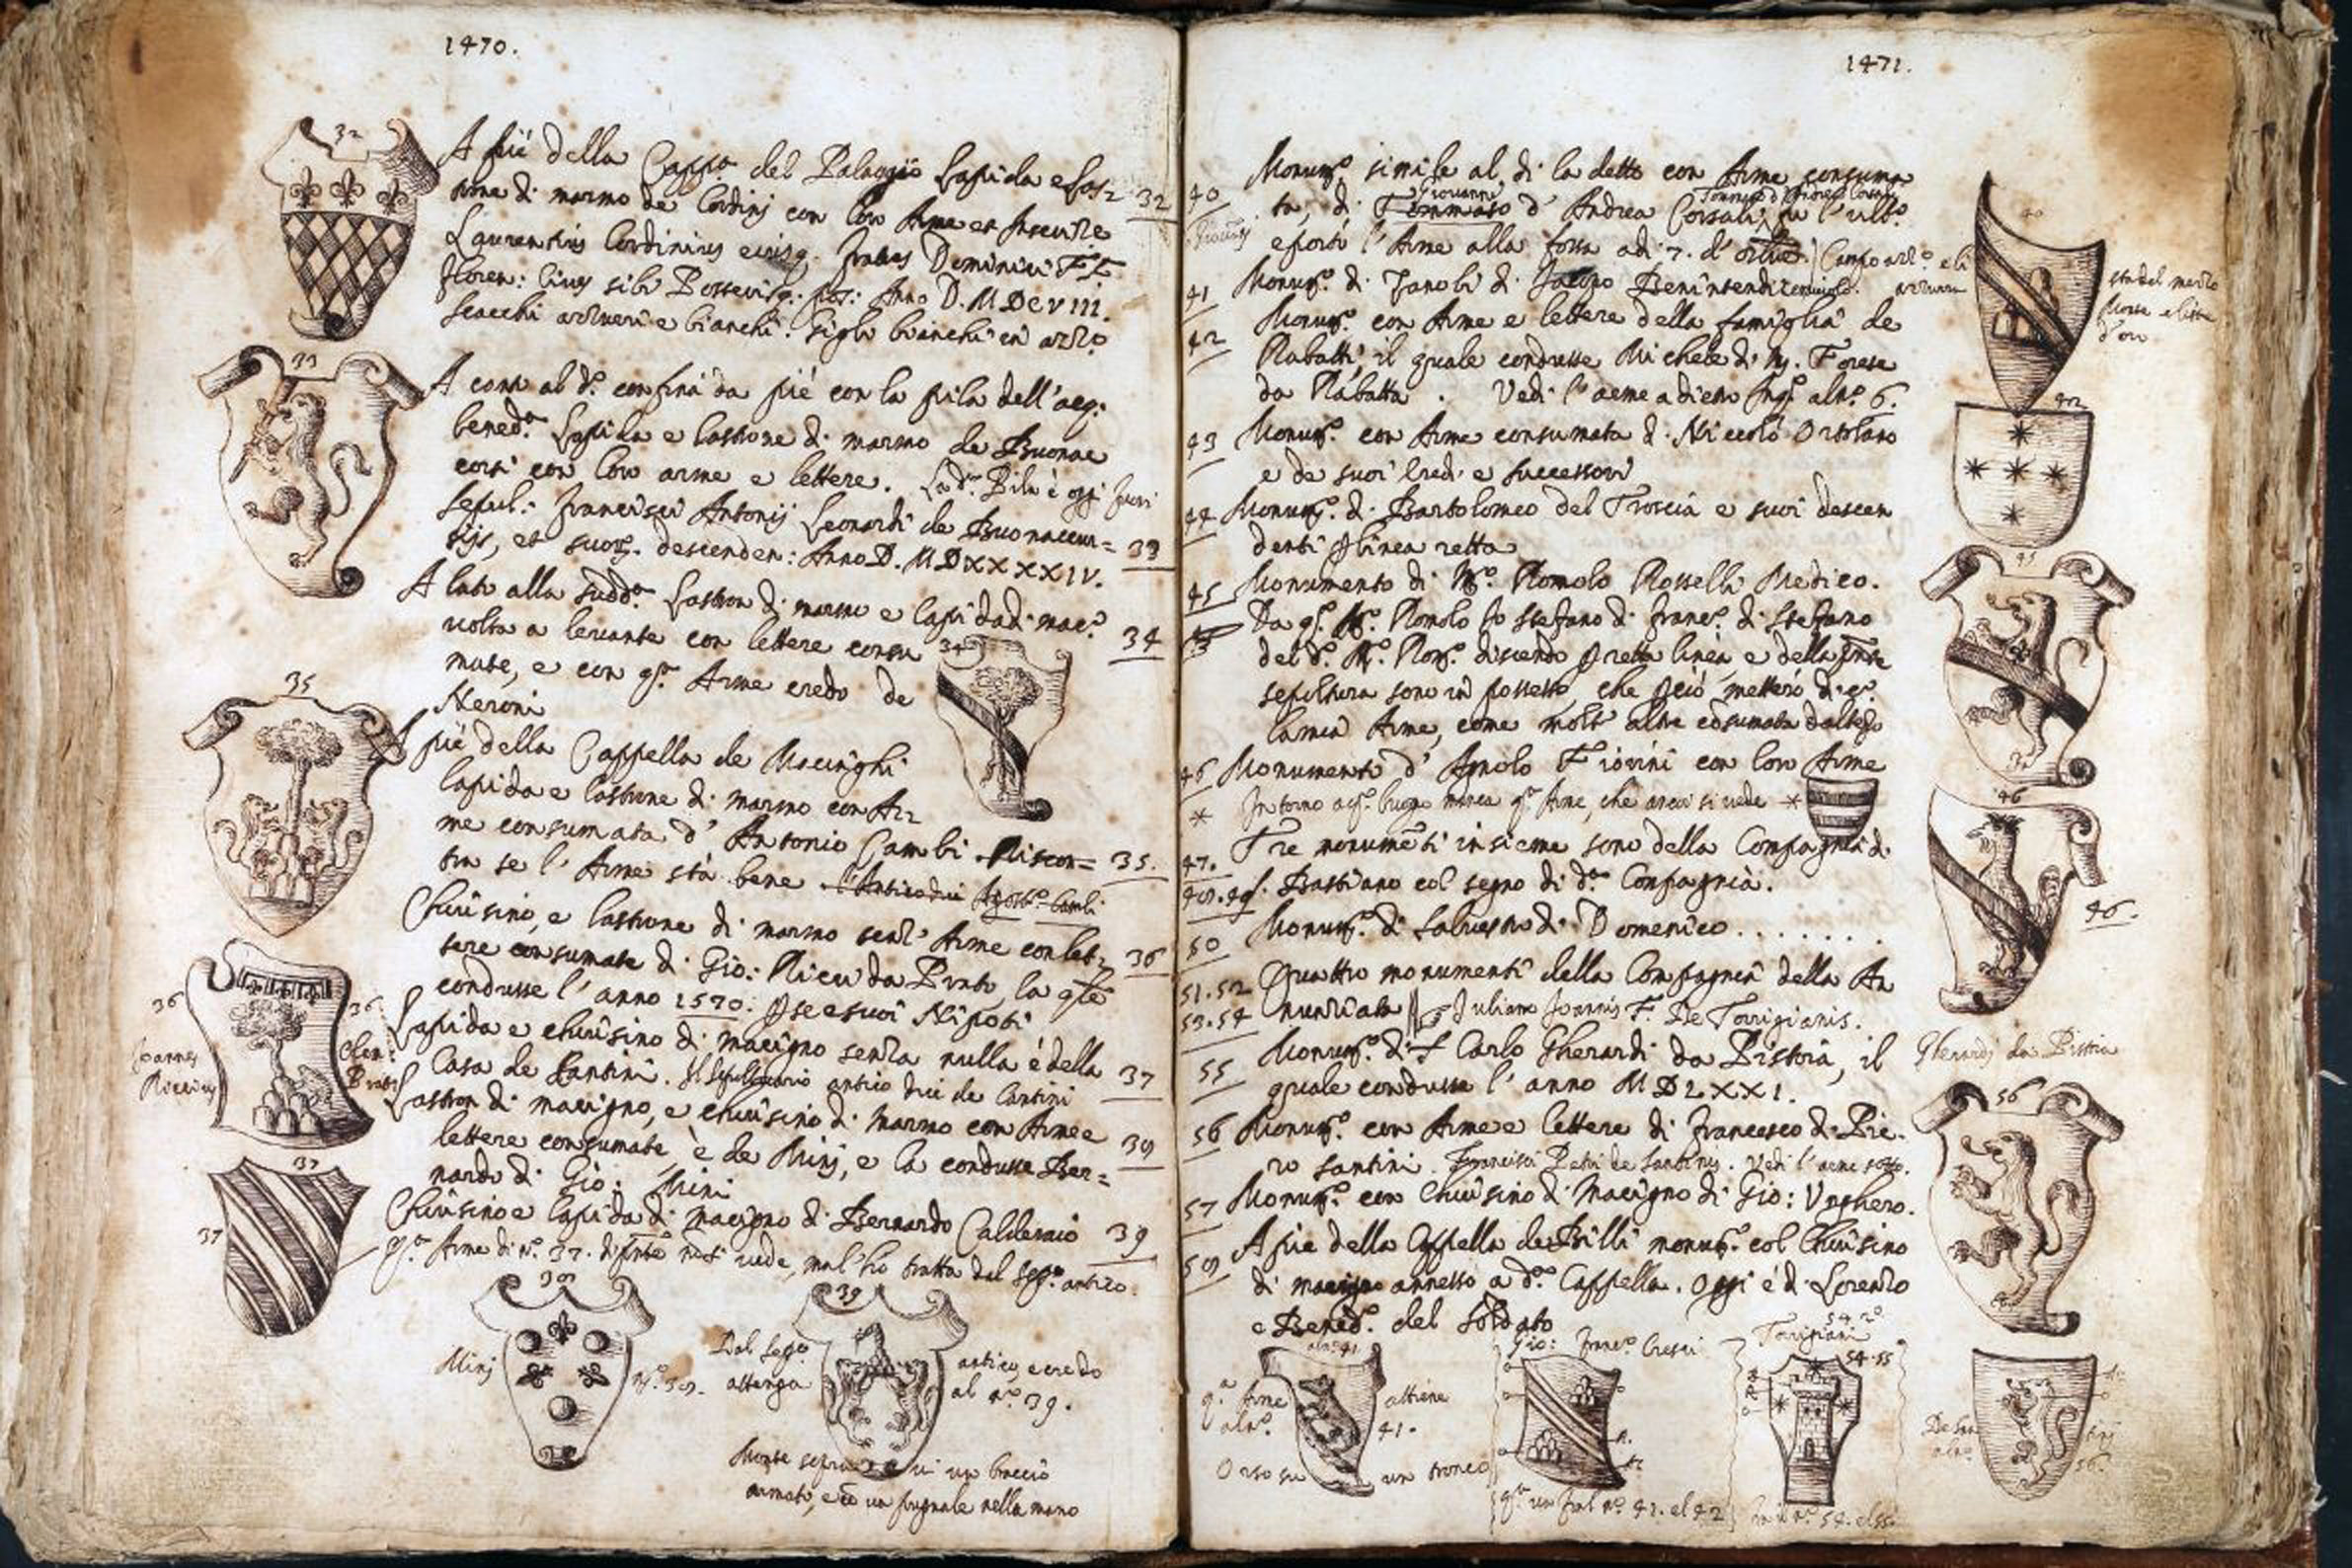 1470.
32
A piè della Capp.ª del Palagio Lapida e las-
trone di marmo de Cordinj con loro Arme et Inscritte 32
Laurentius Cordinius eiusq. Frates Dominici FF
Floren: Cives sibi Posterisq: pos: Anno D. MDCVIII.
Scacchi azzurri e bianchi. Gigli bianchi in azz.º
33
A canto al d.º confina da piè con la pila dell'acq:
bened.ª Lapida e lastrone di marmo de Buonac
corsi con loro arme e lettere. La d.ª Pila è oggi fuori
Sepul: Francisci Antonij Leonardi de Buonaccur=
sijs, et suor. descenden: Anno D. MDXXXXIV. 33
A lato alla sudd.ª Lastron di marmo e lapida di mac.º
volta a levante con lettere consu 34
mate, e con q.ª Arme credo de 34
Neroni
35
A piè della Cappella de Macinghi
lapida e lastrone di marmo con Ar-
me consumata d' Antonio Cambi Riscon= 35.
tra se l' Arme stà bene
Chiusino, e lastrone di marmo senz' Arme con let-
tere consumate di Gio: Ricci da Prato, la q̃le 36
condusse l' anno 1570. p se e suoi Nipoti
36
Joannes
Riccius
36
Lapida e chiusino di macigno senza nulla è della
Casa de Santini. Il Sepoltuario antico dice de Cantini 37
Lastron di macigno, e chiusino di marmo con Arme e
lettere consumate, è de Minj, e la condusse Ber= 38
nardo di Gio: Mini
Chiusino e lapida di macigno di Bernardo Calderaio 39
37
37
q.ª Arme di n.º 37. di p̃nte nõ si vede, ma l' ho tratta dal Sep.º antico.
38
Minj
n.º 38.
39
Dal Sepp.º
attenga
antico, e credo
al n.º 39.
Monte sopra
un braccio
armato, e cõ un pugnale nella mano
1471.
Monum.º simile al di là detto con Arme consuma
40
ta, di Tommaso d' Andrea Corsali,
Giovanni
e portò l' Arme alla fossa adi 7. d'
41 Monum.º di Zanobi di Jacopo Benintendi
42 Monum.º con Arme e lettere della famiglia de
Rabatti, il quale condusse Michele di M. Forese
da Rabatta. Vedi l' arme adietro al n.º 6.
43 Monum.º con Arme consumata di Niccolò Ortolano
e de suoi hredi e successori
44 Monum.º di Bartolomeo del Troscia e suoi descen
denti p linea retta
45 Monumento di M.º Romolo Rosselli Medico.
Da q.º M.º Romolo Io Stefano di Franc.º di Stefano
del d.º M.º Rom.º discendo p retta linea, e della p̃nte
sepultura sono in possesso, che p ciò metterò di q.ª
la mia Arme, come molt' altre cõsumata dal tẽpo
46 Monumento d' Agnolo Fiorini con loro Arme
* In torno a q.º luogo manca q.ª Arme, che ancor si vede *
47. Tre monumẽti insieme sono della Compagnia di
48.49. S. Bastiano col segno di d.ª Compagnia.
50 Monum.º di Salvestro di Domenico . . . . . . .
51.52 Quattro monumenti della Compagnia della An
53.54 nunziata Juliano Joannis F. De Torrigianis.
55 Monum.º di Carlo Gherardi da Pistoia, il
quale condusse l' anno MDLXXI.
56 Monum.º con Arme e lettere di Francesco di Pie-
ro Santini. Francisci Petri de Santinis. Vedi l' arme sotto.
57 Monum.º con Chiusino di Macigno di Gio: Unghero.
58 A piè della Cappella de Billi monum.º col Chiusino
di macigno annesso a d.ª Cappella. Oggi è di Lorenzo
e Bened.º del Soldato
40
Campo azz.º
d'oro
42
45
46
46.
Gherardj da Pistoia
56
al n.º 41
q.ª Arme
al n.º
attiene
41.
Orso su
un tronco
Gio: Franc.º Cresci
n.º 41. el 42
54 2.º
Torrigiani
54.55
n.º 54. el 55
De San
al n.º
tinj
56